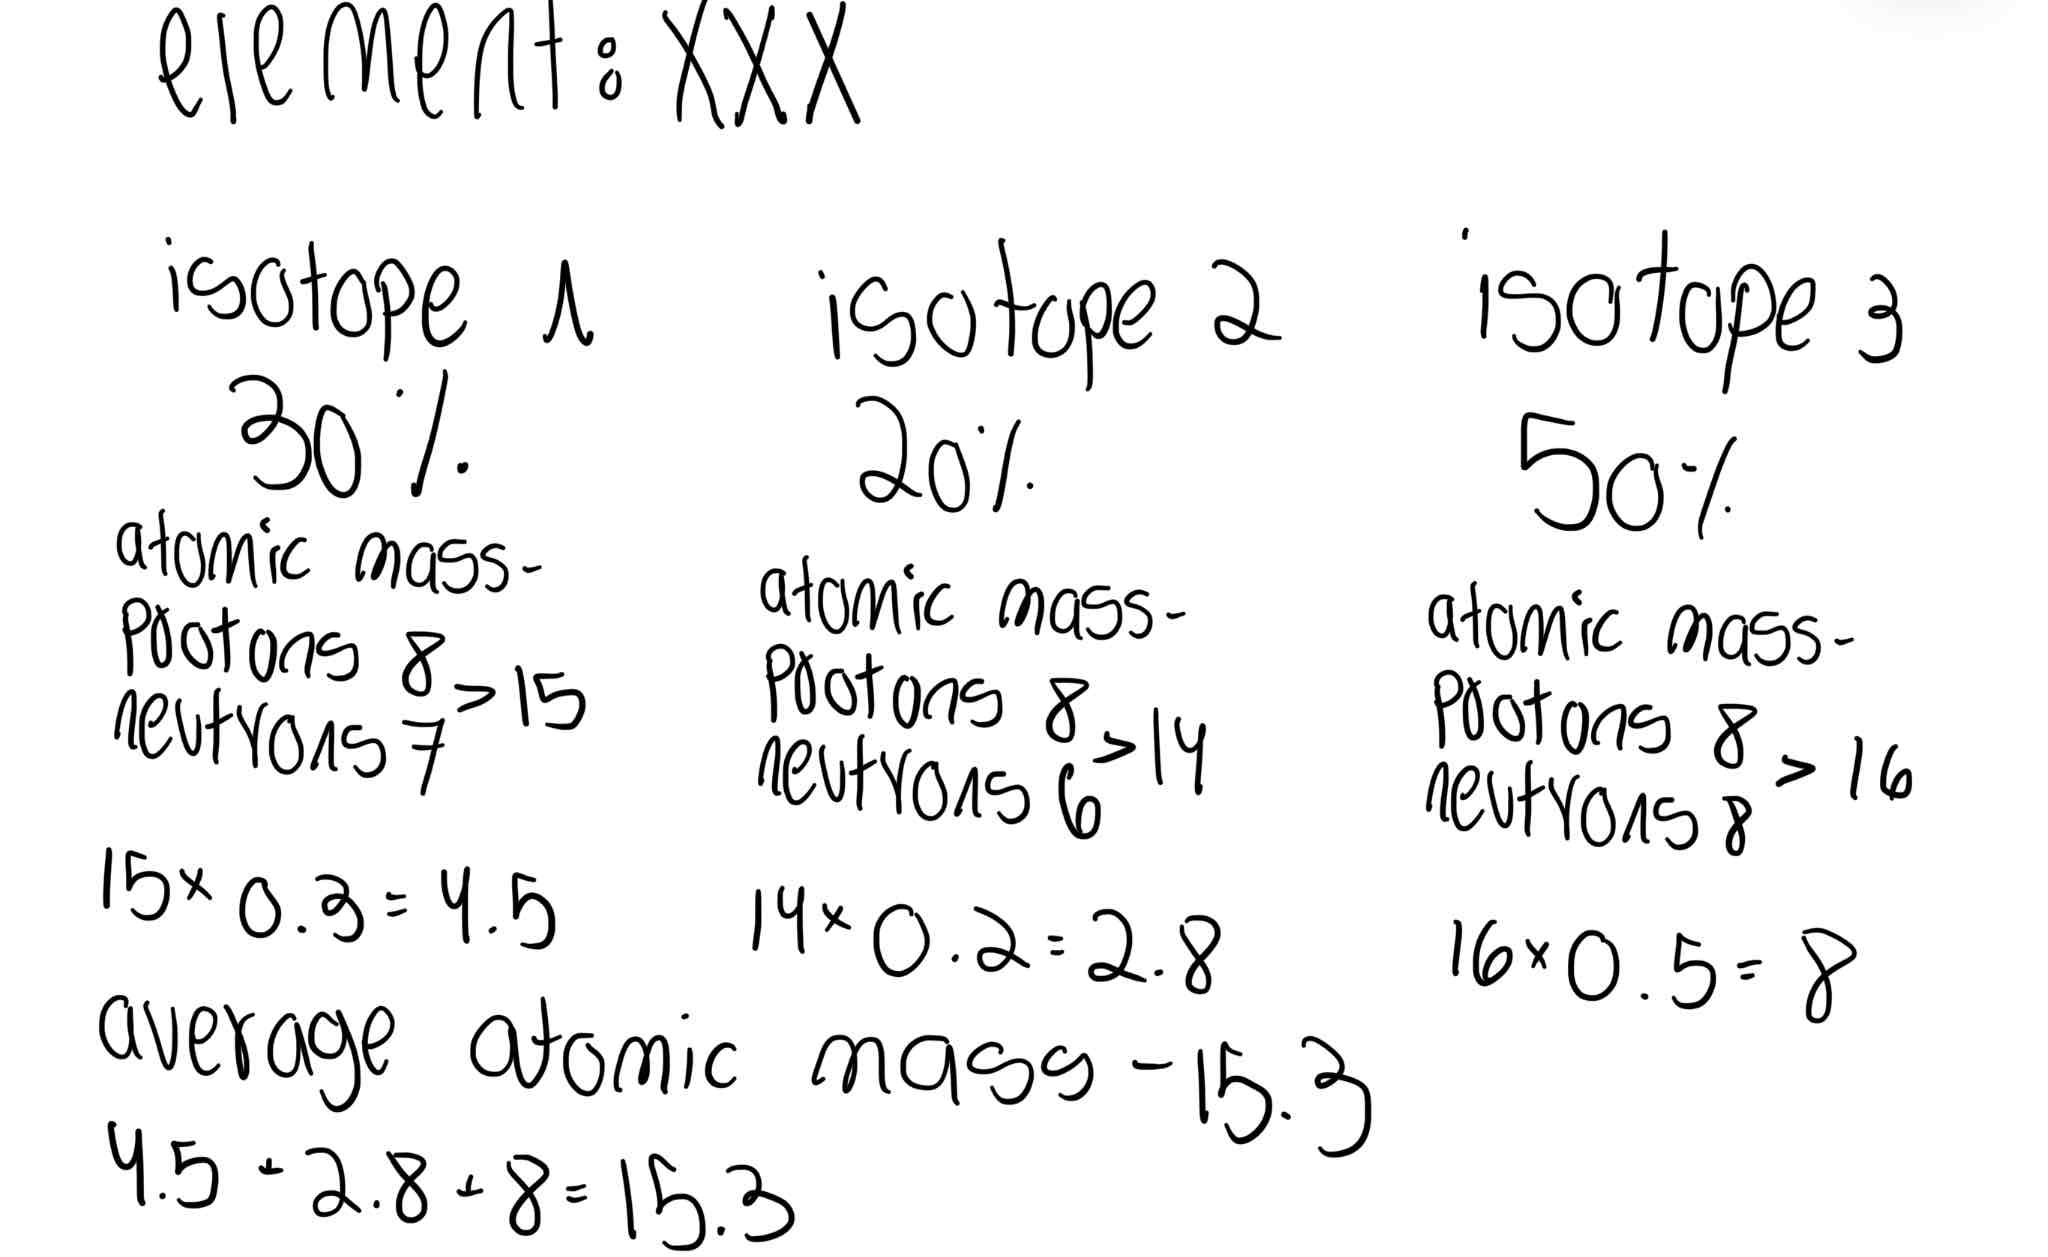 element: XXX
isotope 1
30%
atomic mass-
Protons 8
neutrons 7 >15
15x 0.3= 4.5
isotope 2
20%
atomic mass-
Protons 8
neutrons 6 >14
14x 0.2=2.8
isotope 3
50%
atomic mass-
Protons 8
neutrons 8 > 16
16x0.5= 8
average atomic mass -15.3
4.5 + 2.8 + 8= 15.3